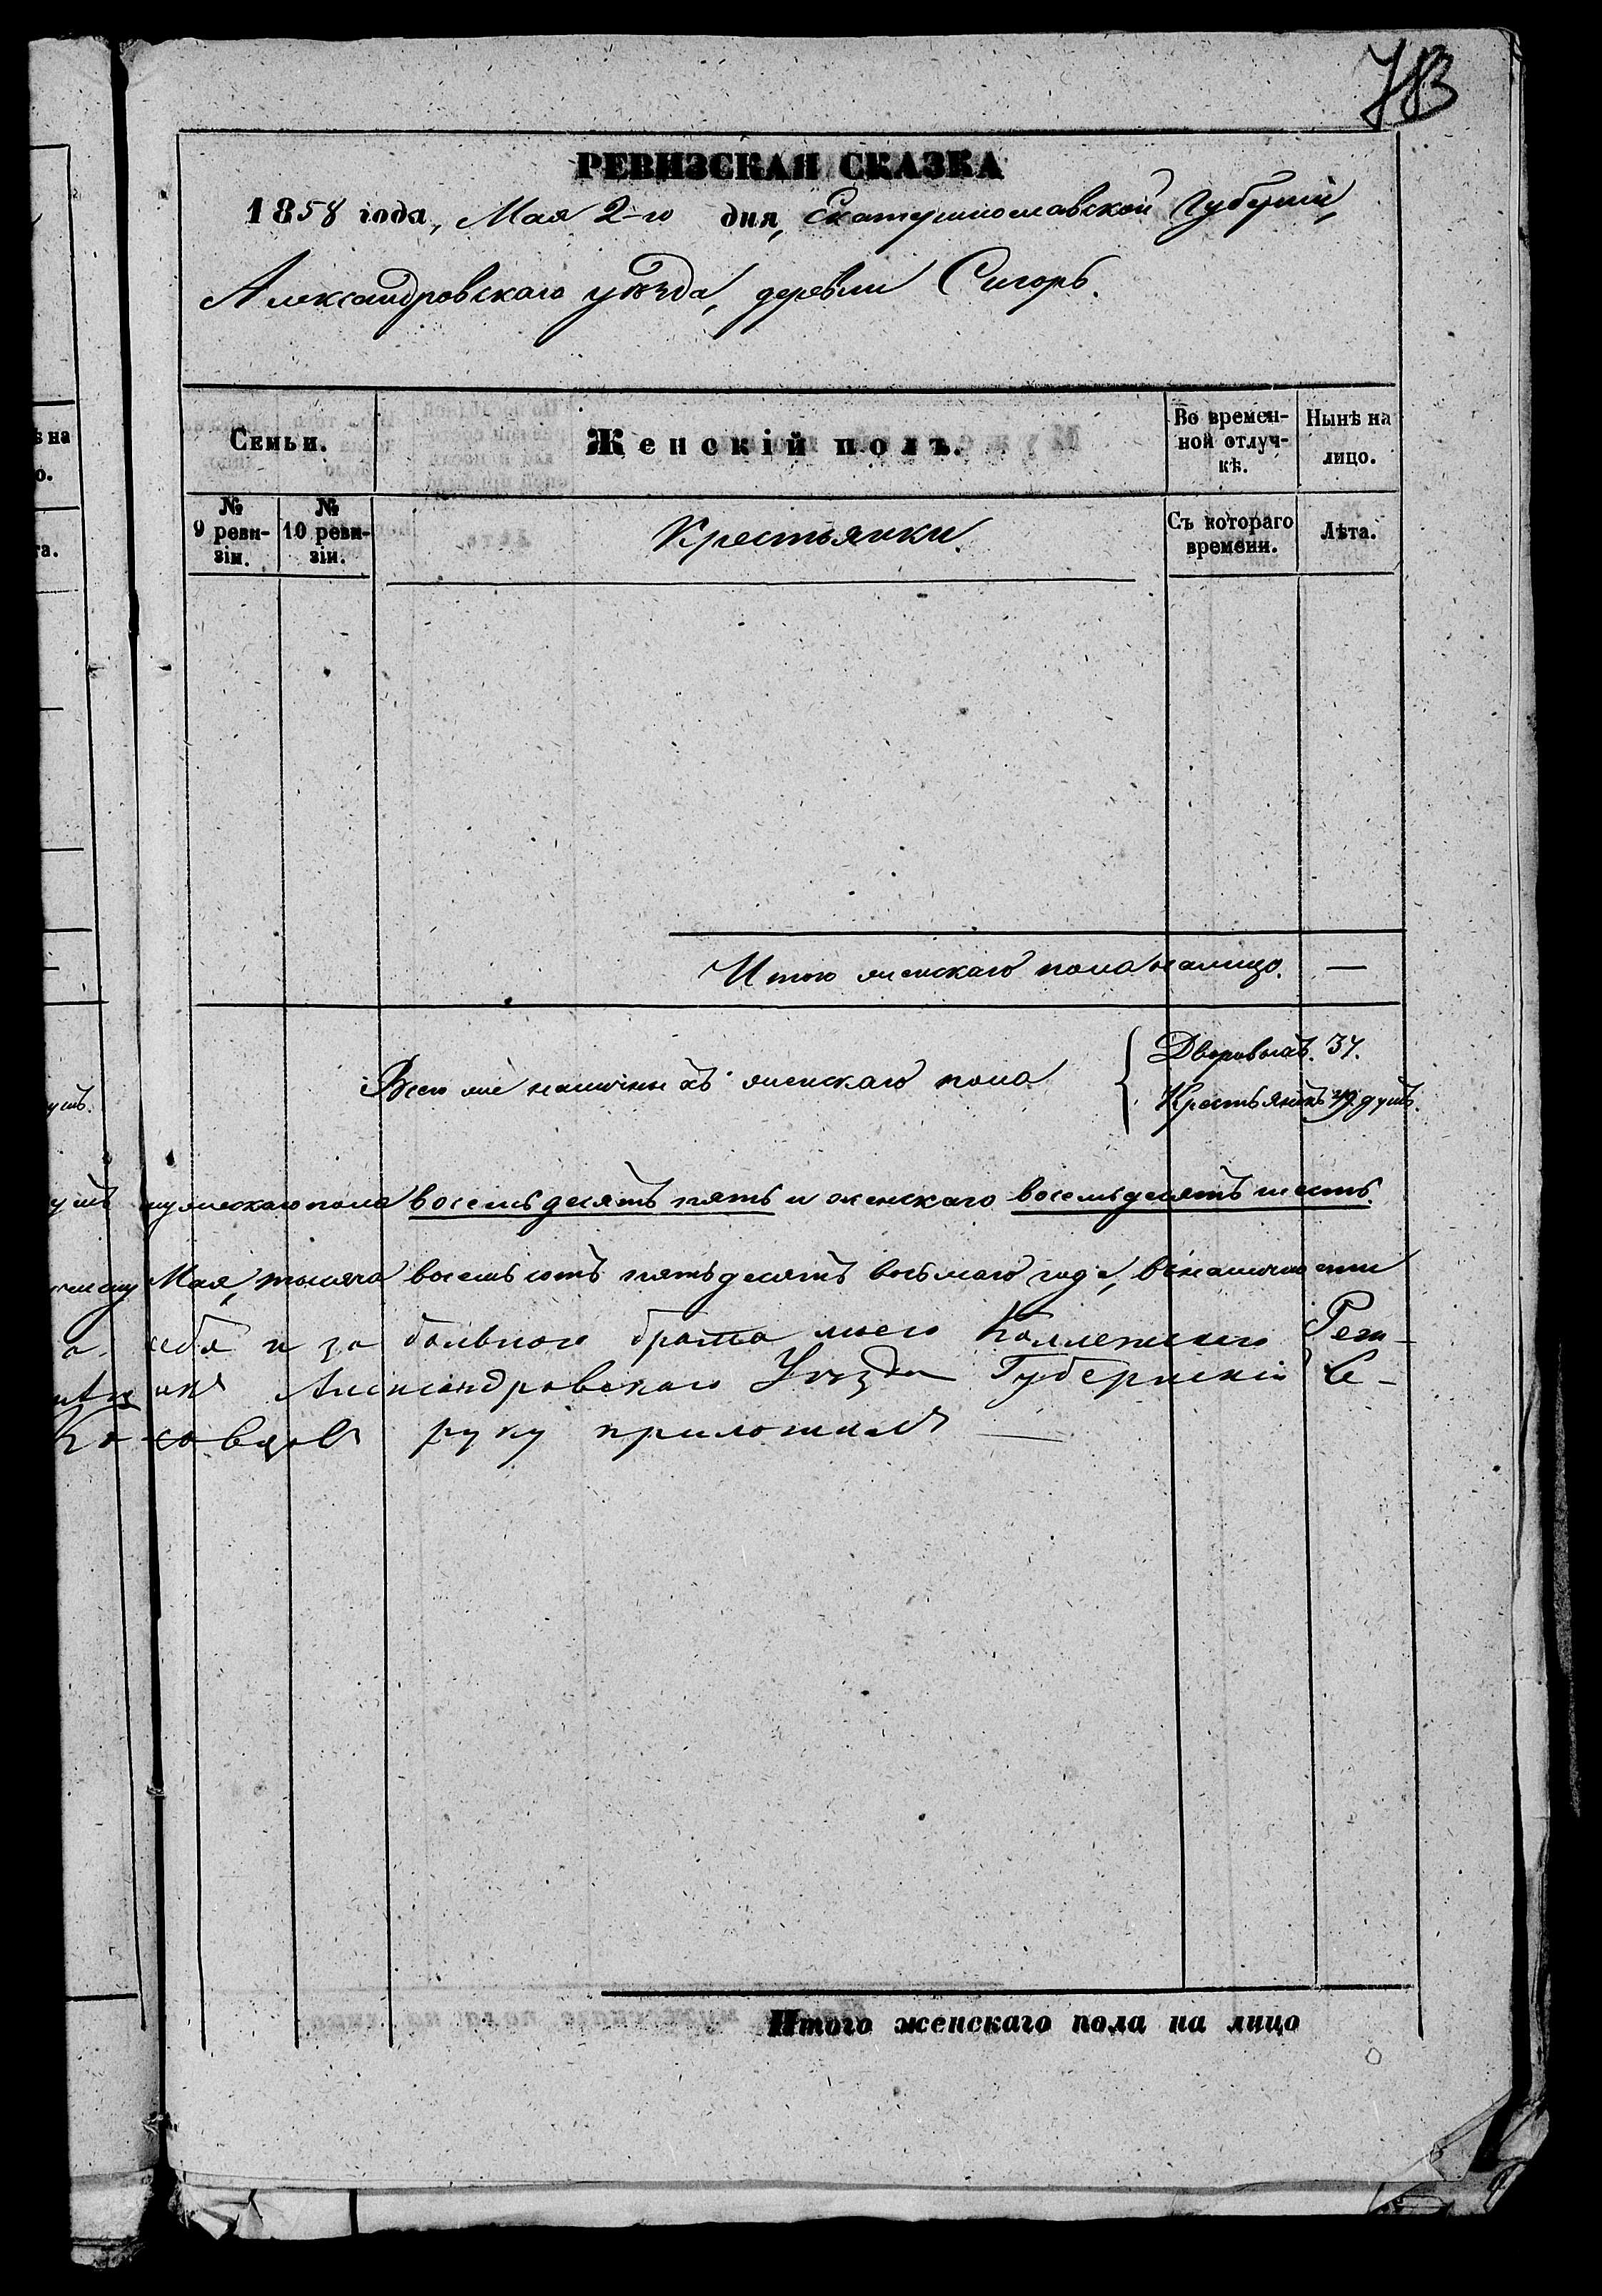 783
РЕВИЗСКАЯ СКАЗКА
1858 года, Мая 2-го дня, Екатеринославской Губернии,
Александровскаго уѣзда, деревни Сигоръ.
Семьи.
Женскій полъ.
Во времен-
ной отлуч-
кѣ.
Нынѣ на
лицо.
№
9 реви-
зіи.
№
10 реви-
зіи.
Крестьянки
Съ котораго
времени.
Лѣта.
Итого женскаго пола на лицо. —
Всего же наличныхъ женскаго пола
Дворовыхъ. 37.
Крестьянокъ 49 душъ.
мужескаго пола восемьдесятъ пять и женскаго восемьдесятъ шесть.
Мая, тысяча восемьсотъ пятьдесятъ восьмаго года, въ
себя и за больного брата моего Коллежскаго Реги-
Александровскаго Уѣзда Губернскій Се-
руку приложилъ —
Итого женскаго пола на лицо